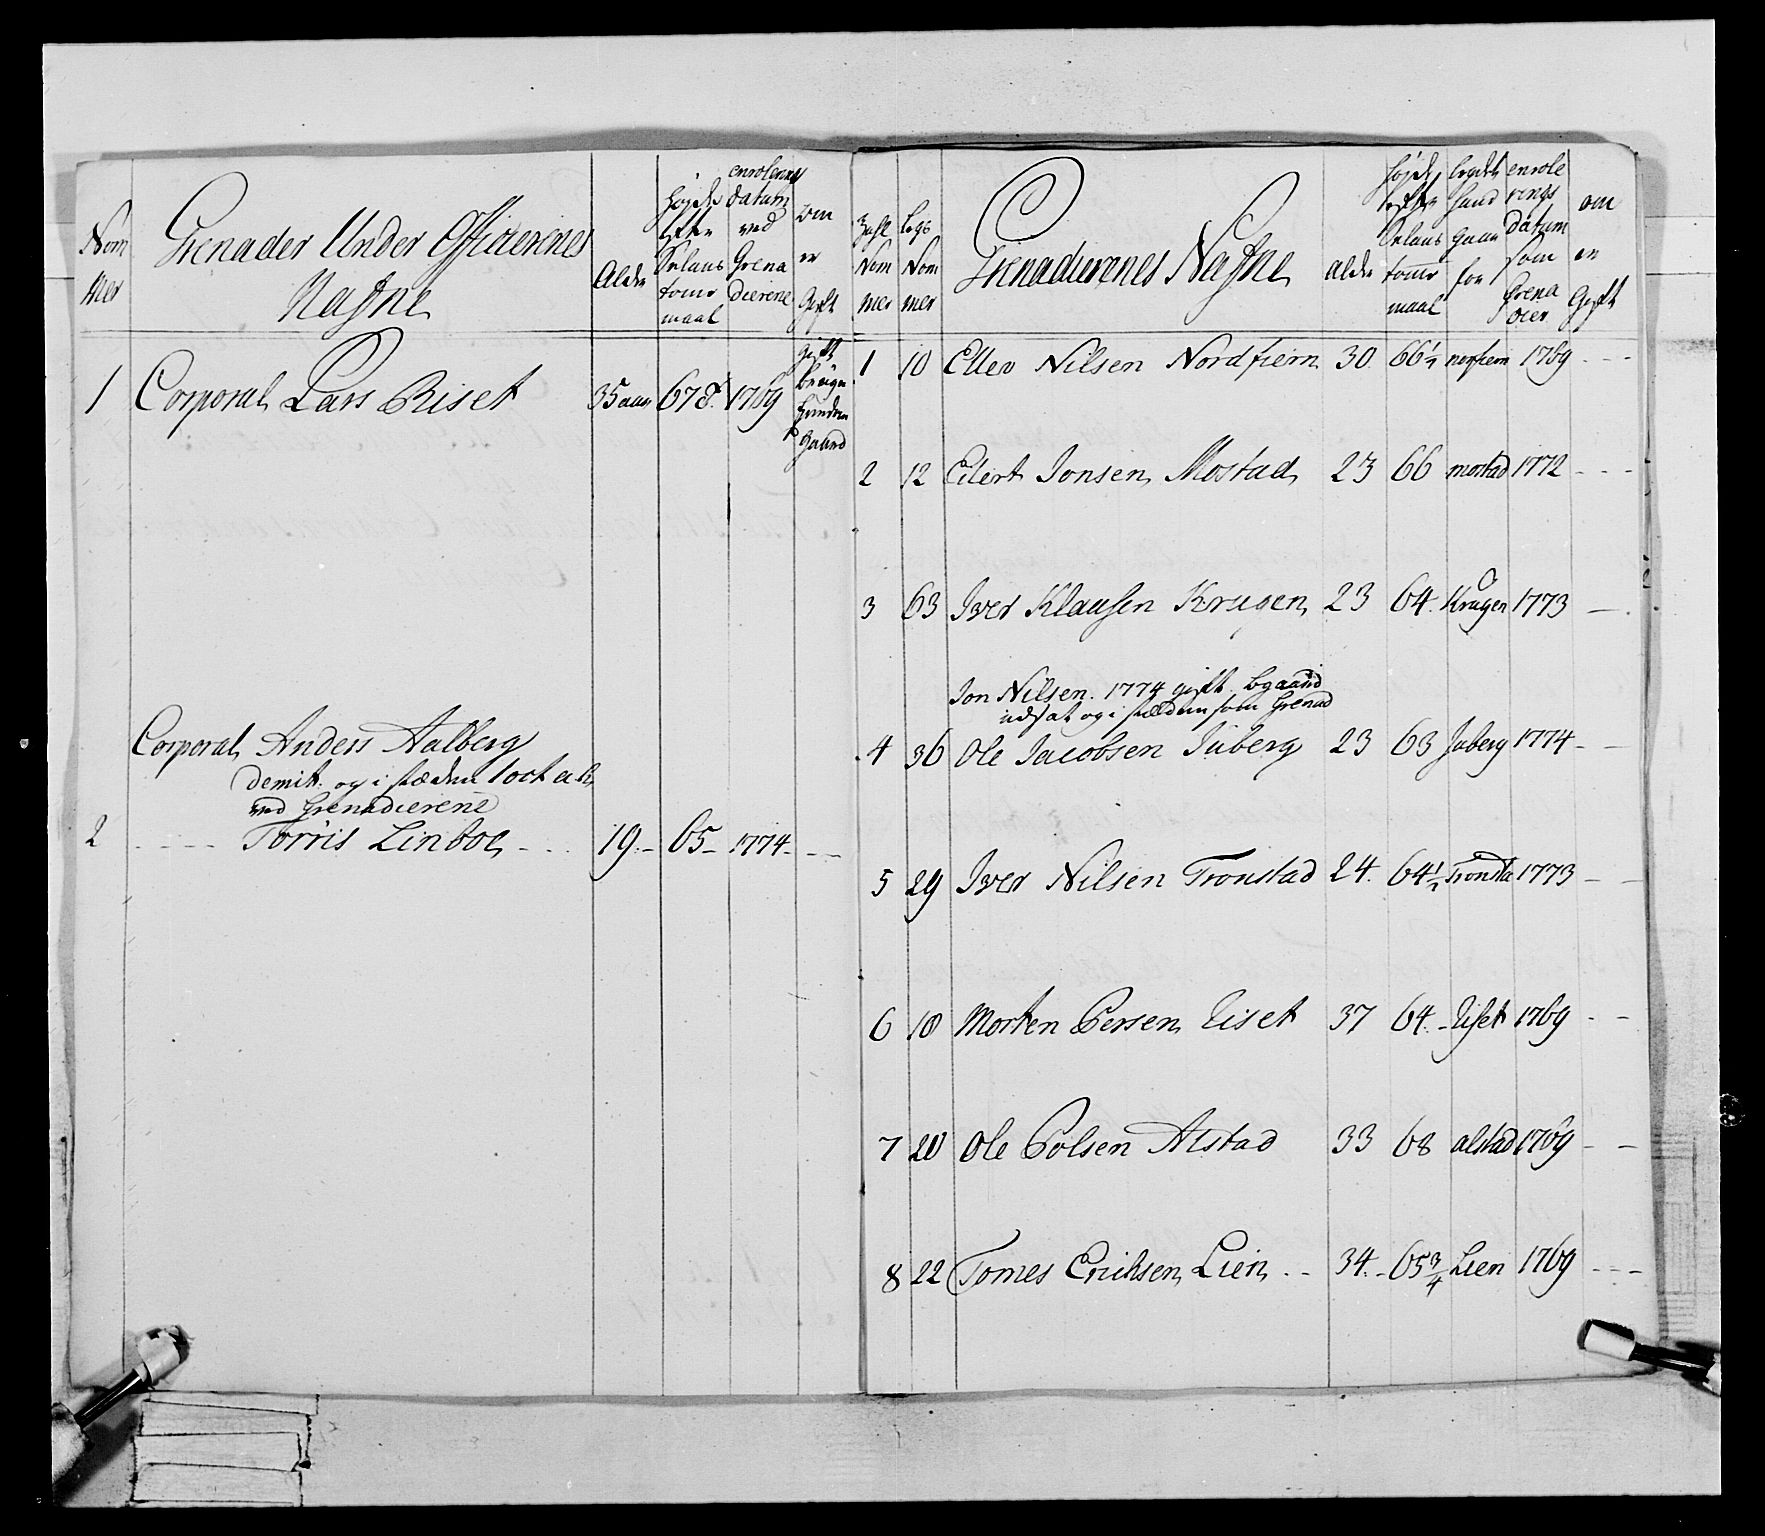 Nom
mer
Grenader Under Officierernes
Nafne
Alder
Højde
efter
Selans
tomr
maal
enrolerings
datum
ved
Grena
dierene
om
er
Gift
1 Corporal Lars Riset 35 aar 67 1769
gift
gaard
Corporal Anders Aalberg
demit. og i stæden
ved Grenadierene
2 - - - - Torris Linboe - - - 19.- 65- 1774- - -
Nom
mer
Legs
Nom
mer
Grenadierernes Nafne
Alder
Højde
efter
Selans
tomr
maal
Legdets
Gaar
for
enrole
rings
Datum
som
Grena
dier
om
er
Gift
1 10 Ellev Nilsen Nordfiern 30 66½ 1769 - - -
2 12 Eilert Jonsen Mostad 23 66 mostad 1772 - - -
3 63 Iver Klausen Krugen 23 64. Krugen 1773 -
Jon Nilsen 1774 gift
udsat og i stæden som Grenad
4 36 Ole Jacobsen Juberg 23 63 Juberg 1774 - -
5 29 Iver Nilsen Tronstad 24. 64½ Tronsta 1773 - -
6 18 Morten Persen Liset 37 64.- Liset 1769 - -
7 20 Ole Polsen Alstad 33 68 alstad 1769 - -
8 22 Tomes Erichsen Lien - - 34.- 65¾ Lien 1769 - - -